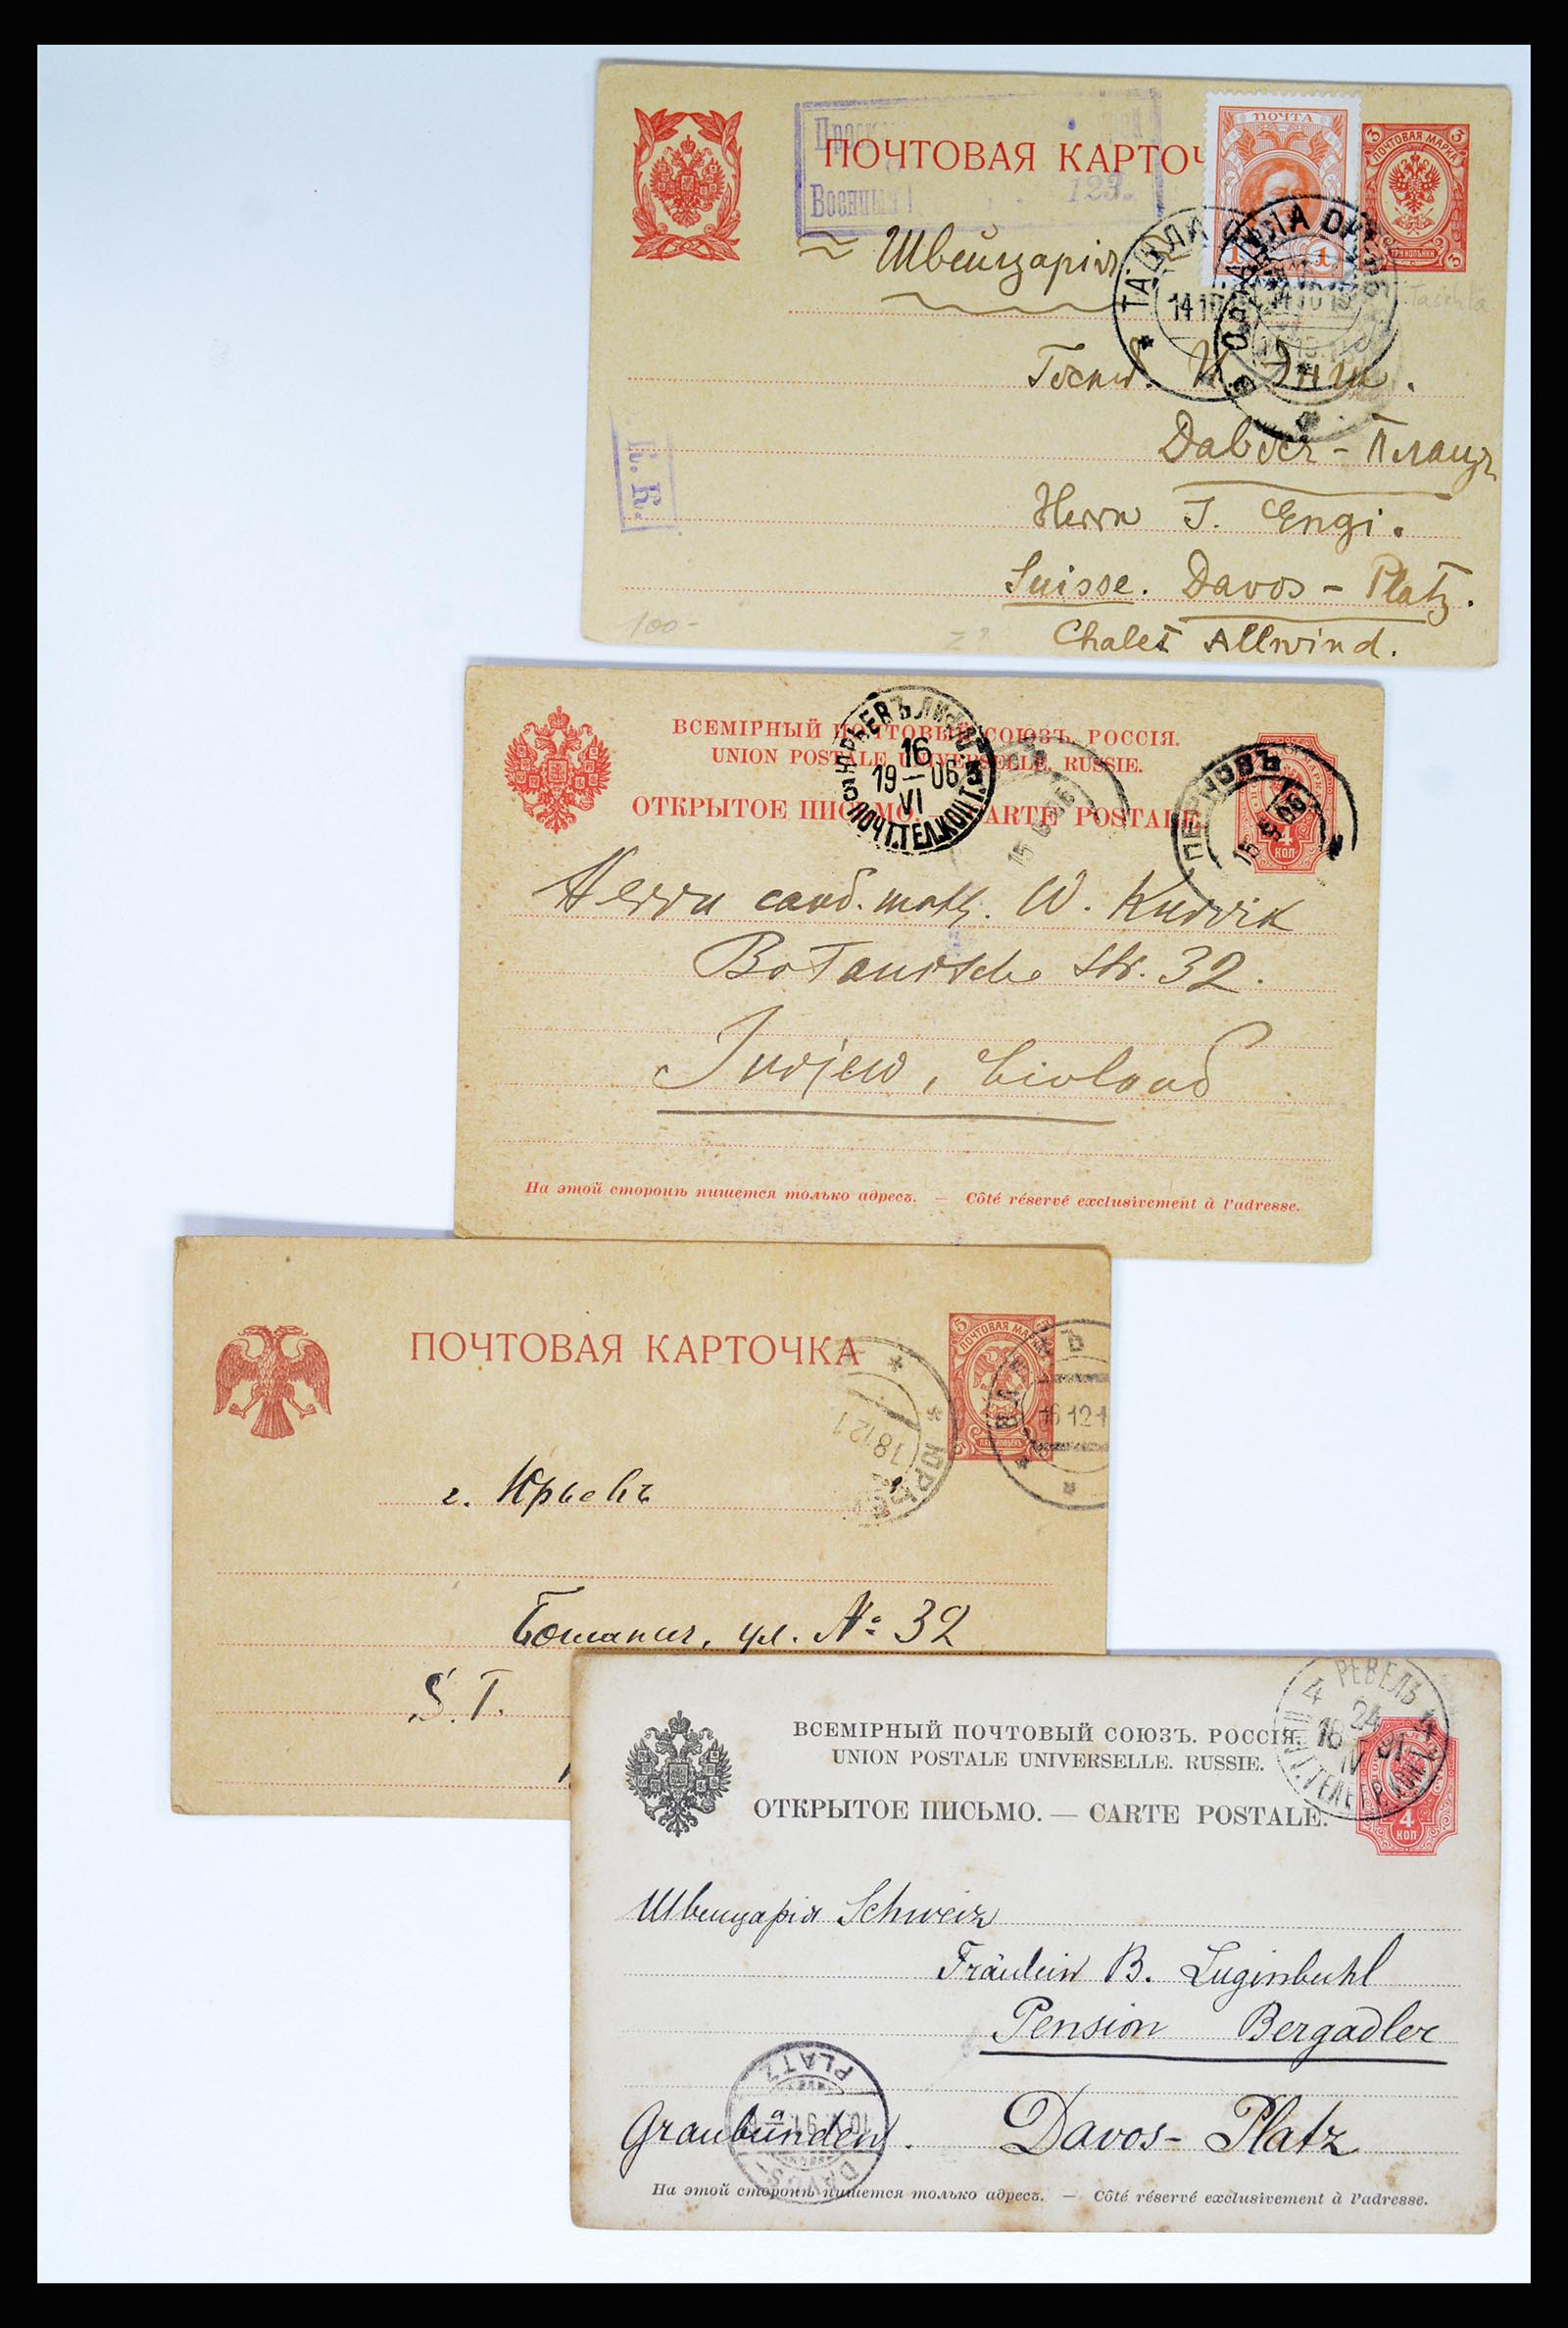 ПОЧТОВАЯ КАРТОЧ
Военный
123.
ПОЧТА
1 1
3 ПОЧТОВАЯ МАРКА 3
ТРИ КОПѢЙКИ 3
ТАШЛА
14 10
Taschla
Швейцарія
Госпд. И. Энги.
Давосъ - Плацъ
К. К.
Herrn J. Engi.
Suisse. Davos - Platz.
100-
Chalet Allwind.
ВСЕМІРНЫЙ ПОЧТОВЫЙ СОЮЗЪ. РОССІЯ.
UNION POSTALE UNIVERSELLE. RUSSIE.
ОТКРЫТОЕ ПИСЬМО. — CARTE POSTALE
ЮРЬЕВЪ ЛИФЛ.
16
19—06
VI
5 ПОЧТ.ТЕЛ.КОНТ. 5
ПЕРНОВЪ
15 6 06
4
КОП
Herrn cand. math. W. Kurrik
Botanische Str. 32.
Jurjew, Livland
На этой сторонѣ пишется только адресъ. — Côté réservé exclusivement à l'adresse.
ПОЧТОВАЯ КАРТОЧКА
5 ПОЧТОВАЯ МАРКА
16 12 1
ЮРЬЕ
18 12 1
г. Юрьевъ
Ботанич. ул. № 32
S. T.
ВСЕМІРНЫЙ ПОЧТОВЫЙ СОЮЗЪ. РОССІЯ.
UNION POSTALE UNIVERSELLE. RUSSIE.
ОТКРЫТОЕ ПИСЬМО. — CARTE POSTALE.
4 РЕВЕЛЬ 4
24
18 91
IV
4
КОП
Швейцарія Schweiz
Fräulein B. Luginbuhl
Pension Bergadler
Graubünden. Davos - Platz
DAVOS-
PLATZ
На этой сторонѣ пишется только адресъ. — Côté réservé exclusivement à l'adresse.